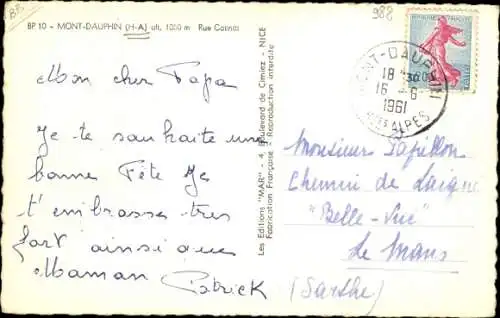 BP.
988
BP 10 - MONT-DAUPHIN (H-A) alt. 1000 m Rue Catinat
Mon cher Papa
Je te souhaite une
bonne Fête Je
t'embrasse très
fort ainsi que
Maman Patrick
Les Editions "MAR" - 4, Boulevard de Cimiez - NICE
Fabrication Française - Reproduction interdite
MONT-DAUPHIN
18 H30
16 -6
1961
HTES ALPES
Monsieur Papillon
Chemin de Laigné
"Belle-Vue"
Le Mans
(Sarthe)